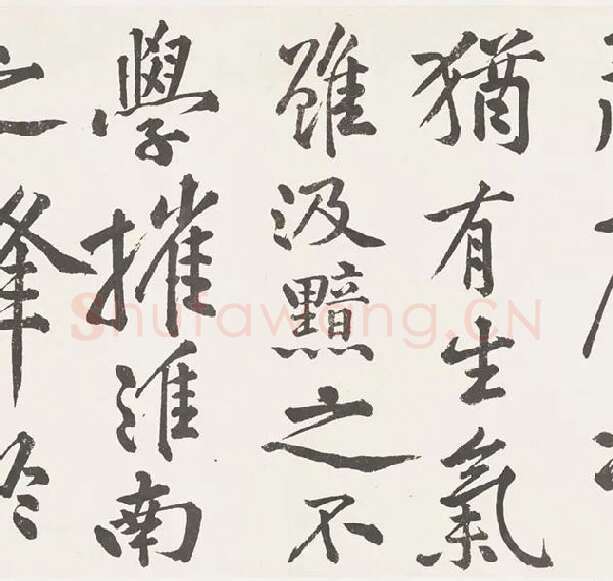 猶有生氣
雖汲黯之不
學摧淮南
之
Shufawang.CN